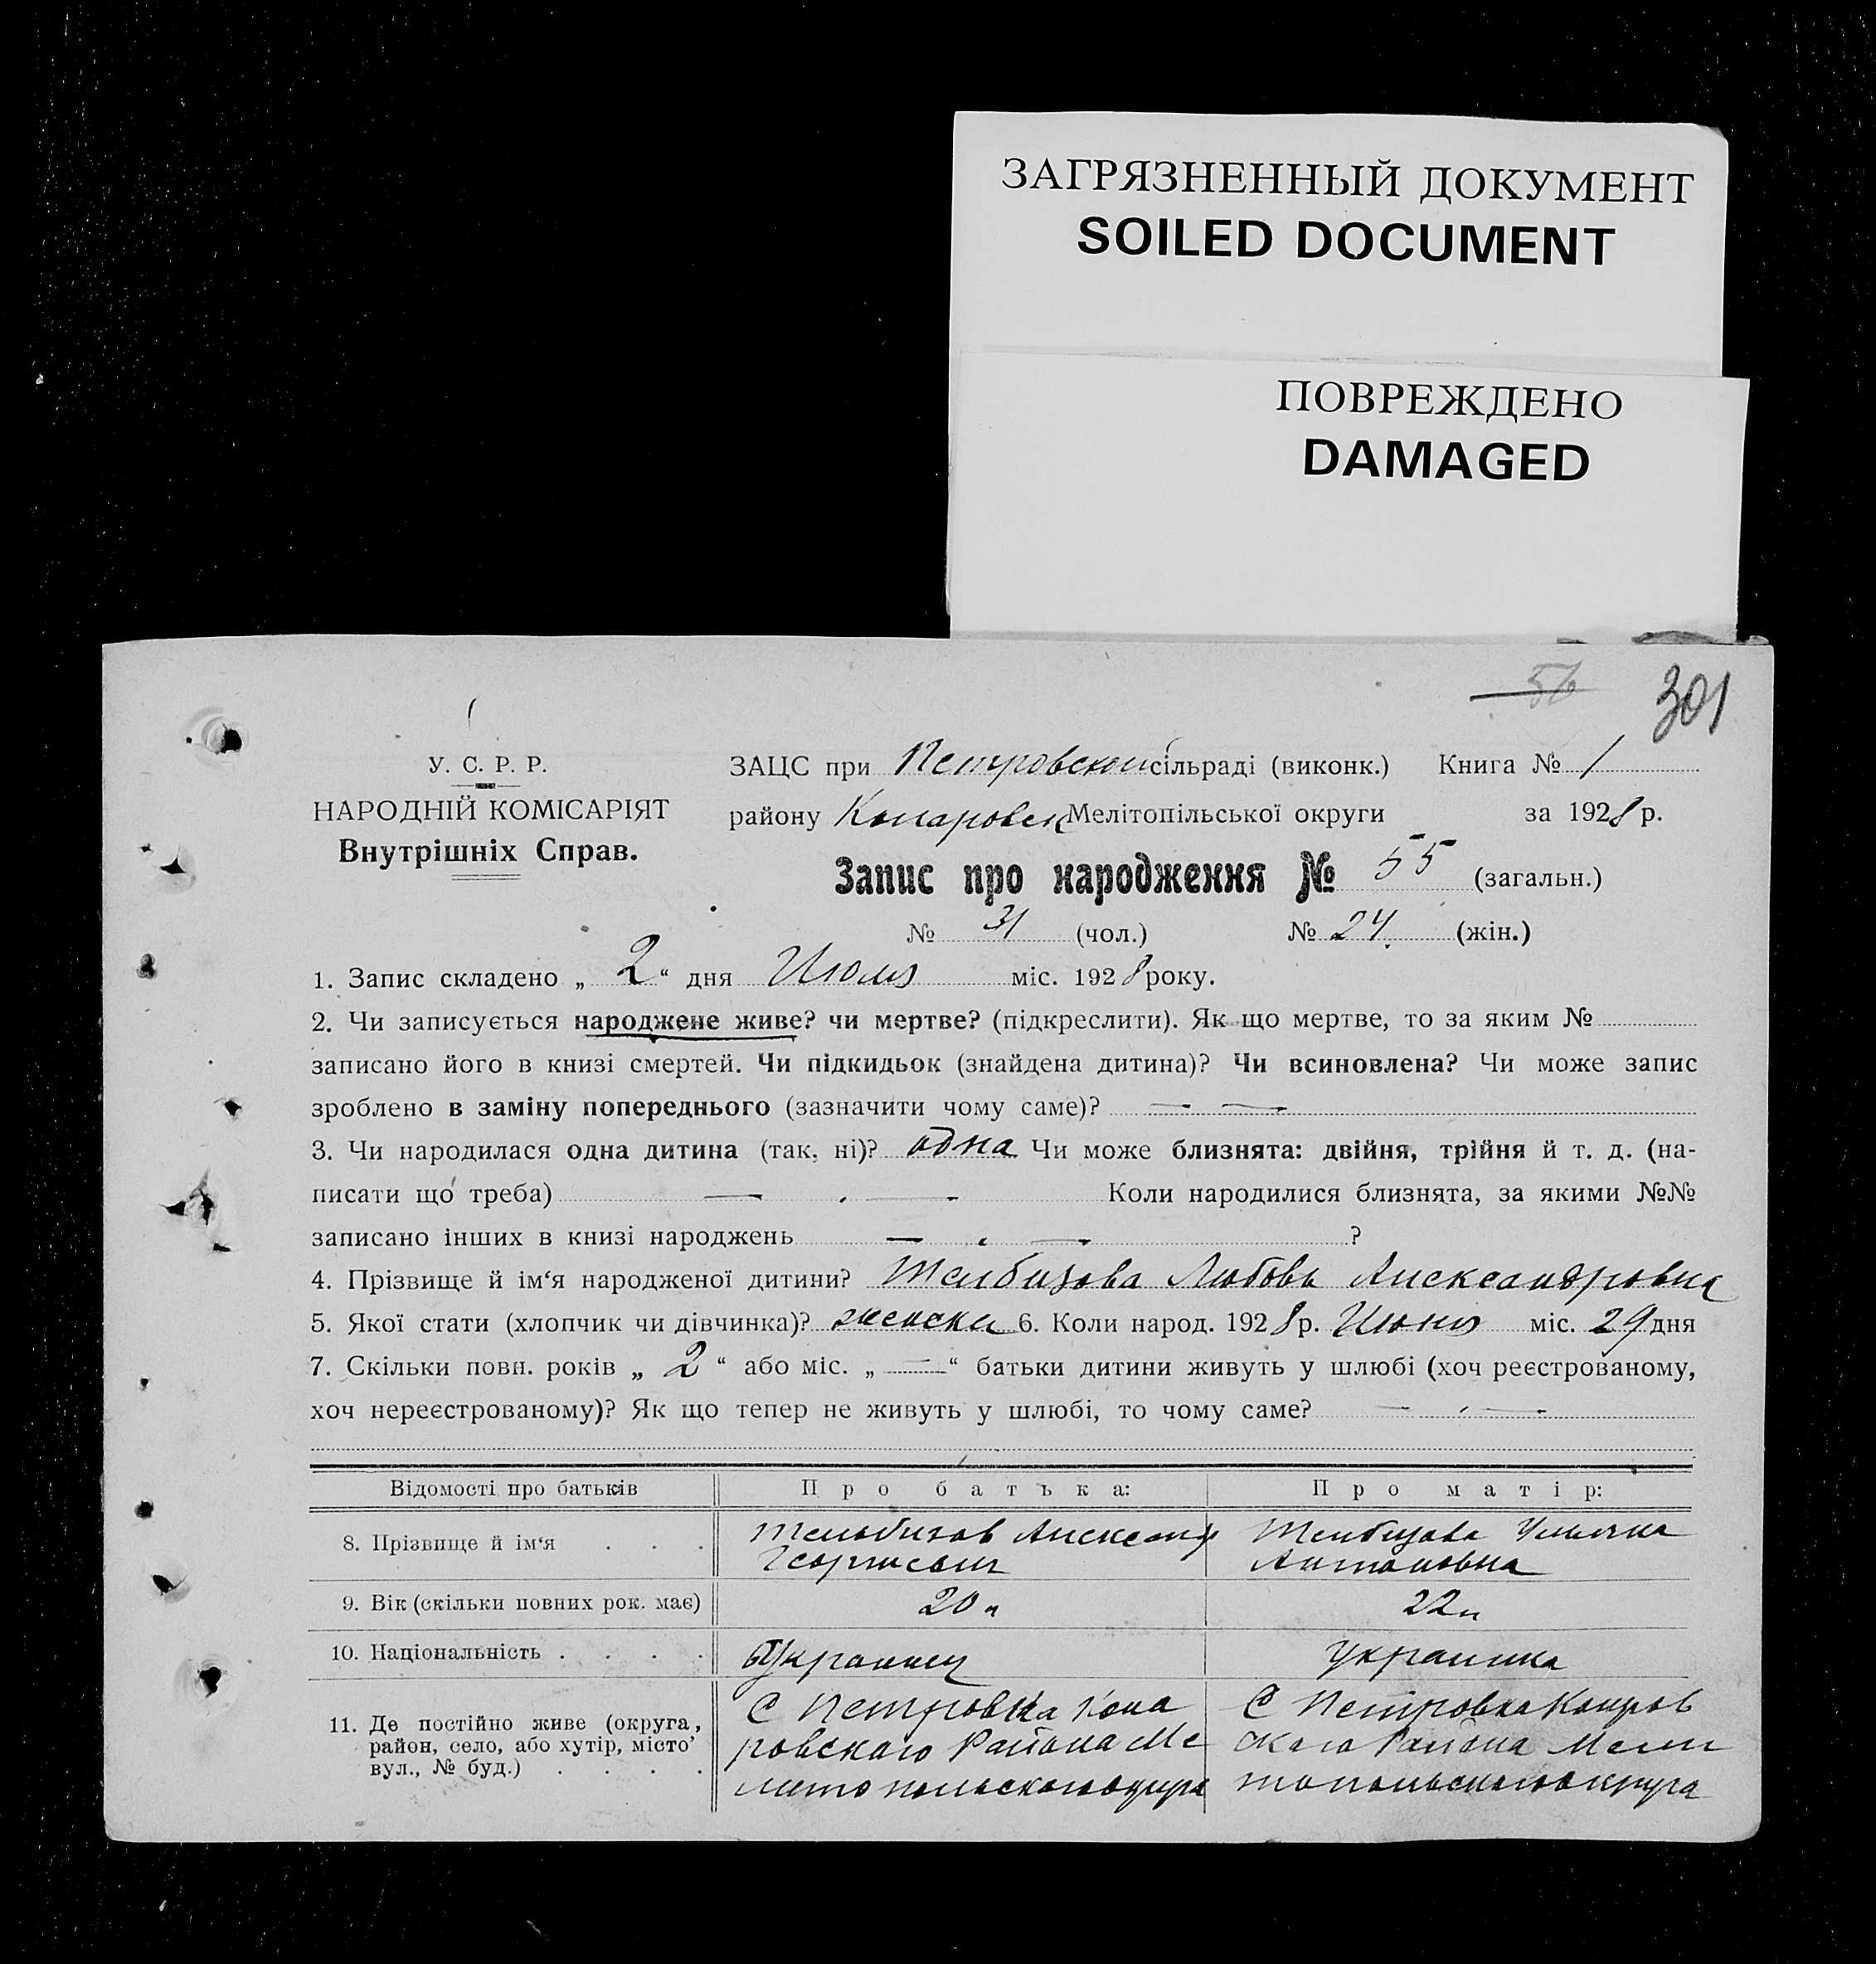 ЗАГРЯЗНЕННЫЙ ДОКУМЕНТ
SOILED DOCUMENT
ПОВРЕЖДЕНО
DAMAGED
56 301
У. С. Р. Р.
НАРОДНІЙ КОМІСАРІЯТ
Внутрішніх Справ.
ЗАЦС при Петровской сільраді (виконк.) Книга № 1
району Мелітопільської округи за 1928 р.
Запис про народження № 55 (загальн.)
№ 31 (чол.) № 24 (жін.)
1. Запис складено „ 2 “ дня Июля міс. 1928 року.
2. Чи записується народжене живе? чи мертве? (підкреслити). Як що мертве, то за яким №
записано його в книзі смертей. Чи підкидьок (знайдена дитина)? Чи всиновлена? Чи може запис
зроблено в заміну попереднього (зазначити чому саме)? — —
3. Чи народилася одна дитина (так, ні)? одна Чи може близнята: двійня, трійня й т. д. (на-
писати що треба) — . — Коли народилися близнята, за якими №№
записано інших в книзі народжень — . — ?
4. Прізвище й ім‘я народженої дитини? Любовь Александровна
5. Якої стати (хлопчик чи дівчинка)? 6. Коли народ. 1928 р. Июня міс. 29 дня
7. Скільки повн. років „ 2 “ або міс. „ — “ батьки дитини живуть у шлюбі (хоч реєстрованому,
хоч нереєстрованому)? Як що тепер не живуть у шлюбі, то чому саме? — . —
Відомості про батьків Про батька: Про матір:
8. Прізвище й ім‘я . . .
Георгиевич Антоновна
9. Вік (скільки повних рок. має) 20 л 22 л
10. Національність . . . . Украинец украинка
11. Де постійно живе (округа,
район, село, або хутір, місто’
вул., № буд.) . . . .
С Петровка Копа
ровского Района Ме
литопольского округа
С Петровка Копров
ского Района Мели
топольского округа